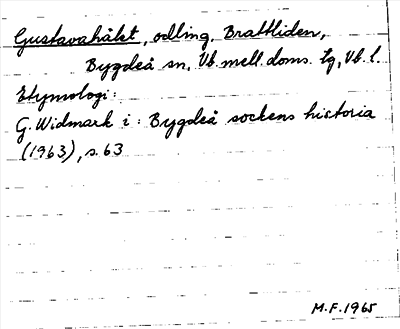 Gustavahålet, odling, Brattliden,
Bygdeå sn, Vb. mell. doms. tg, Vb. l.
Etymologi:
G. Widmark i: Bygdeå sockens historia
(1963), s. 63
M.F. 1965